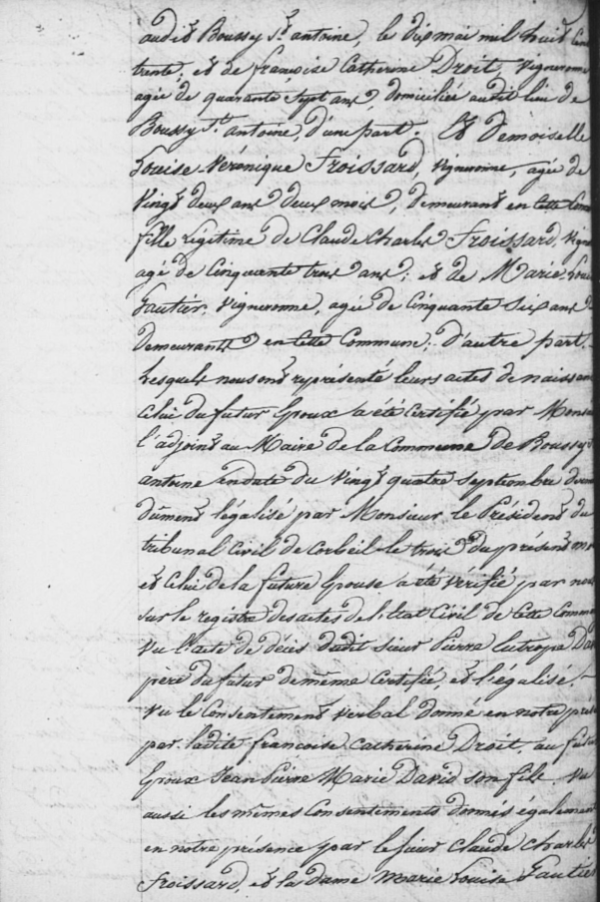 audit Boussy St antoine, le dix mai mil huit cent
trente, et de françoise Catherine Droit, vigneronne
agée de quarante sept ans, domiciliée audit lieu de
Boussy St antoine, d'une part. Et demoiselle
Louise Véronique Froissard, vigneronne, agée de
vingt deux ans deux mois, demeurant en cette Com
fille légitime de Claude Charles Froissard, vign
agé de Cinquante trois ans; et de Marie Loui
Gautier, vigneronne, agée de Cinquante six ans
demeurants en Cette Commune; d'autre part.
Lesquels nous ont représenté leurs actes de naissan
Celui du futur Epoux a été Certifié par Monsi
l'adjoint au Maire de la Commune de Boussy St
antoine en date du vingt quatre septembre derni
dûment légalisé par Monsieur le Président du
tribunal Civil de Corbeil le trois du présent mo
et Celui de la future Epouse a été vérifié par nou
sur le registre des actes de l'état Civil de Cette Comm
vu l'acte de décès dudit sieur Pierre Eutrope Dav
père du futur de même Certifié, et légalisé,
vu le Consentement verbal donné en notre prés
par ladite françoise Catherine Droit, au futur
Epoux Jean Pierre Marie David son fils. Vu
aussi les mêmes Consentements donnés également
en notre présence par le sieur Claude Charles
Froissard, et la dame Marie Louise Gautier